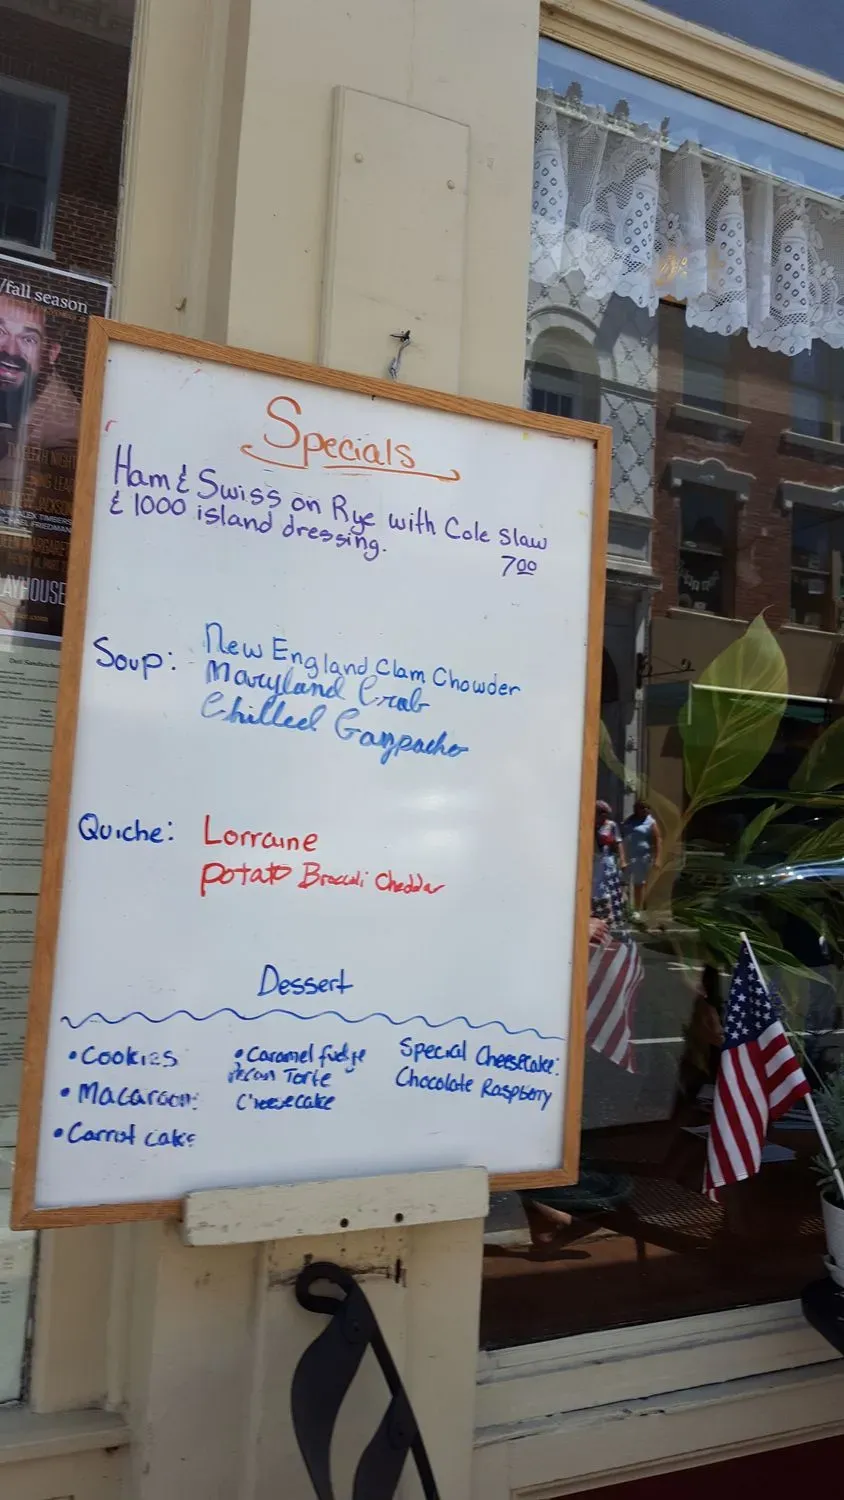 /fall season
Specials
Ham & Swiss on Rye with Cole Slaw
& 1000 island dressing.
7.00
Soup: New England Clam Chowder
Maryland Crab
Chilled Gazpacho
Quiche: Lorraine
Potato Broccoli Cheddar
Dessert
• Cookies
• Macaroon:
• Carrot cake
• Caramel fudge
Pecan Torte
Cheesecake
Special Cheesecake:
Chocolate Raspberry
LAYHOUSE